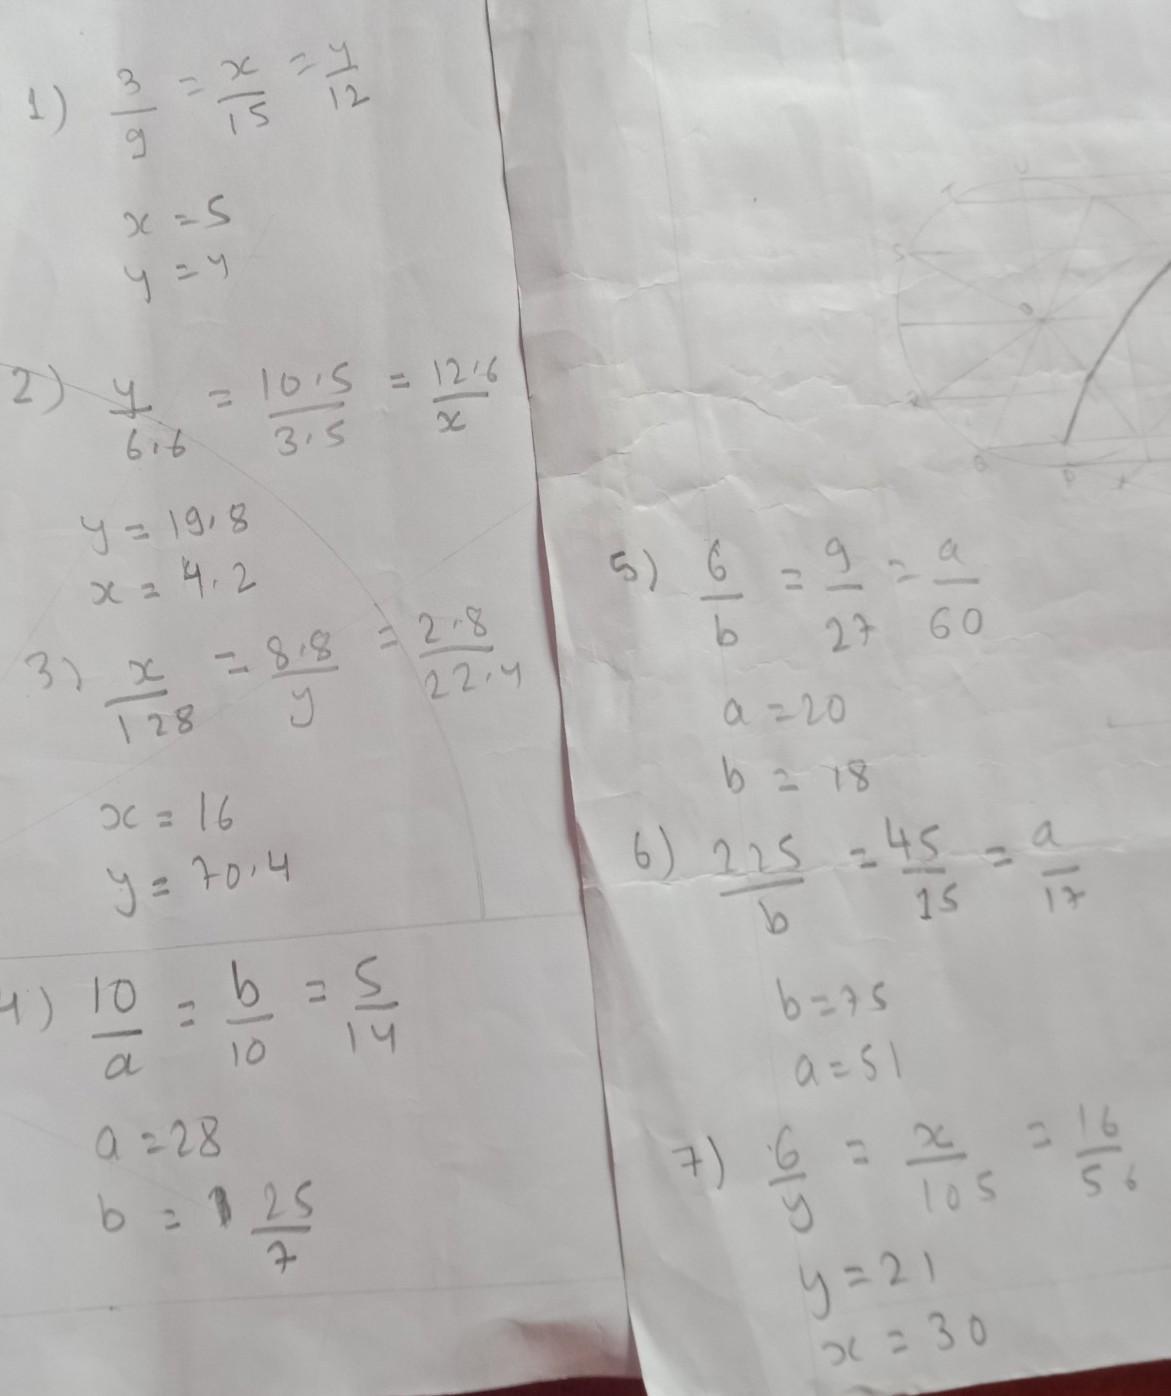 1) 3/9 = x/15 = y/12
x = 5
y = 4
2) y/6.6 = 10.5/3.5 = 12.6/x
y = 19.8
x = 4.2
3) x/128 = 8.8/y = 2.8/22.4
x = 16
y = 70.4
4) 10/a = b/10 = 5/14
a = 28
b = 25/7
5) 6/b = 9/27 = a/60
a = 20
b = 18
6) 225/b = 45/15 = a/17
b = 75
a = 51
7) 6/y = x/105 = 16/56
y = 21
x = 30